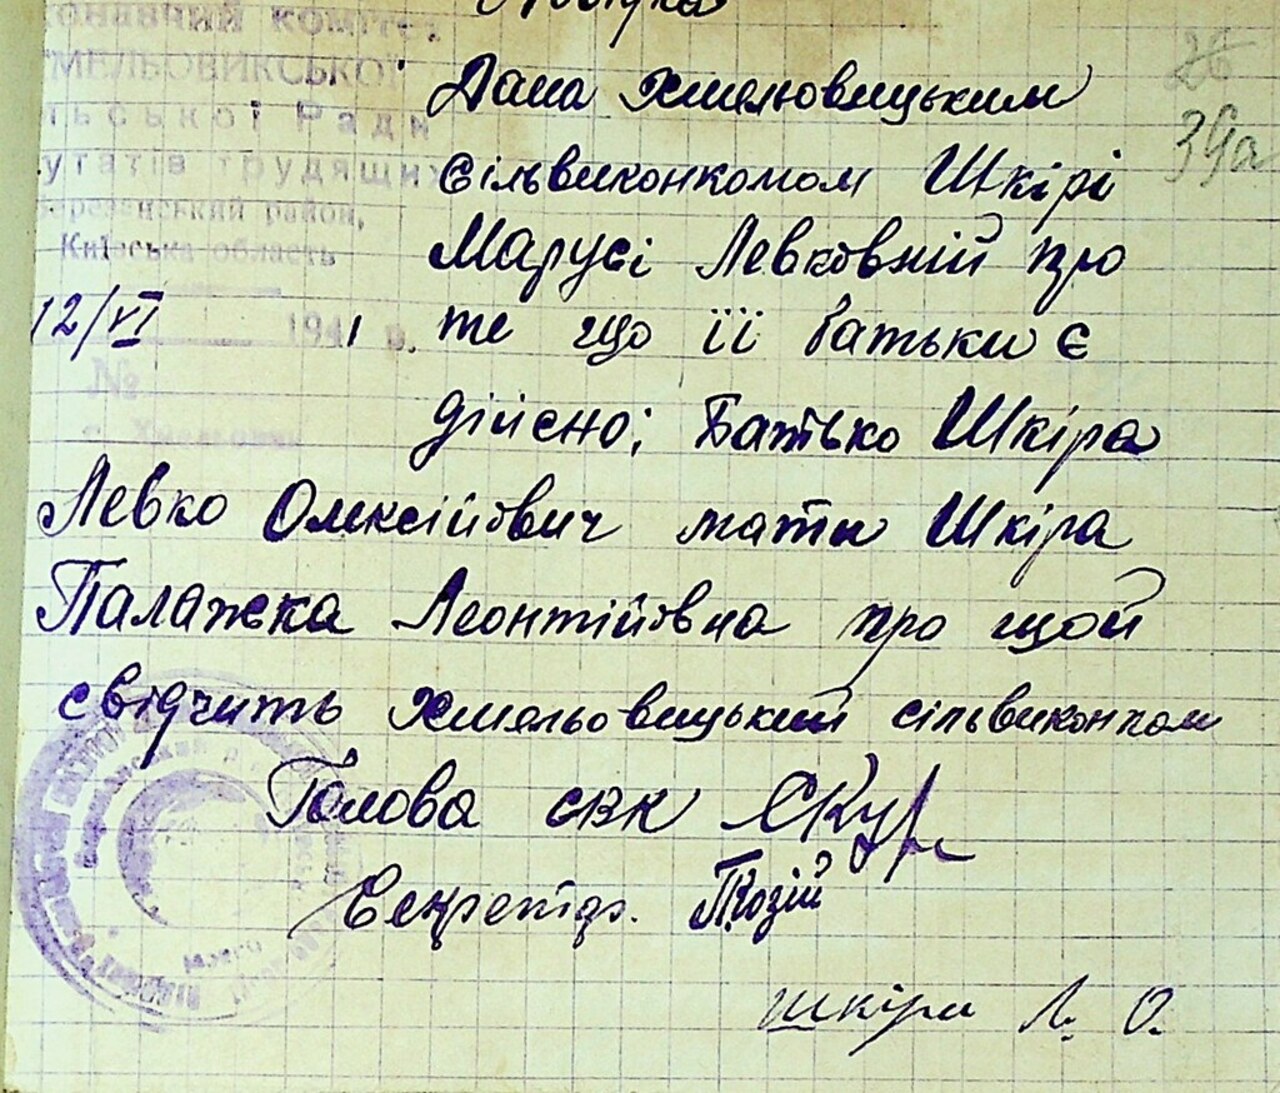 Довідка
конавчий коміте
МЕЛЬОВИКСЬКОЇ
льської Ради
утатів трудящих
Березанський район,
Київська область
12/VI 1941 р.
№
Дана Хмельовицьким
сільвиконкомом Шкірі
Марусі Левковній про
те що її батьки є
дійсно; Батько Шкіра
Левко Олексійович мати Шкіра
Палажка Леонтійовна про щой
свідчить Хмельовицький сільвиконком
Голова свк
Секретар. Ткозій
шкіри Л. О.
26
39а